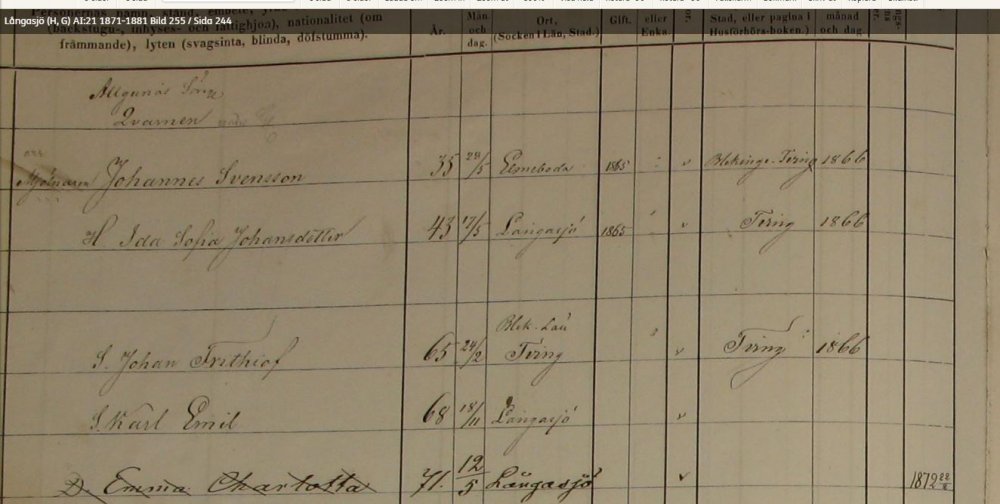 Långasjö (H, G) AI:21 1871-1881 Bild 255 / Sida 244
(backstugu-, inhyses- och fattighjon), nationalitet (om
främmande), lyten (svagsinta, blinda, döfstumma).
År.
Mån.
och
dag.
Ort,
(Socken i Län, Stad.)
Gift.
eller
Enka.
Stad, eller pagina i
Husförhörs-boken.)
månad
och dag.
Allgunås
Qvarnen
Mjölnaren Johannes Svensson 35 28/5 Elmeboda 1865 Blekinge Tving 1866
H Ida Sofia Johansdotter 43 17/5 Långasjö 1865 Tving 1866
Blek. Län
S. Johan Frithiof 65 24/2 Tving Tving 1866
S. Karl Emil 68 18/11 Långasjö
D. Emma Charlotta 71. 12/5 Långasjö 1872